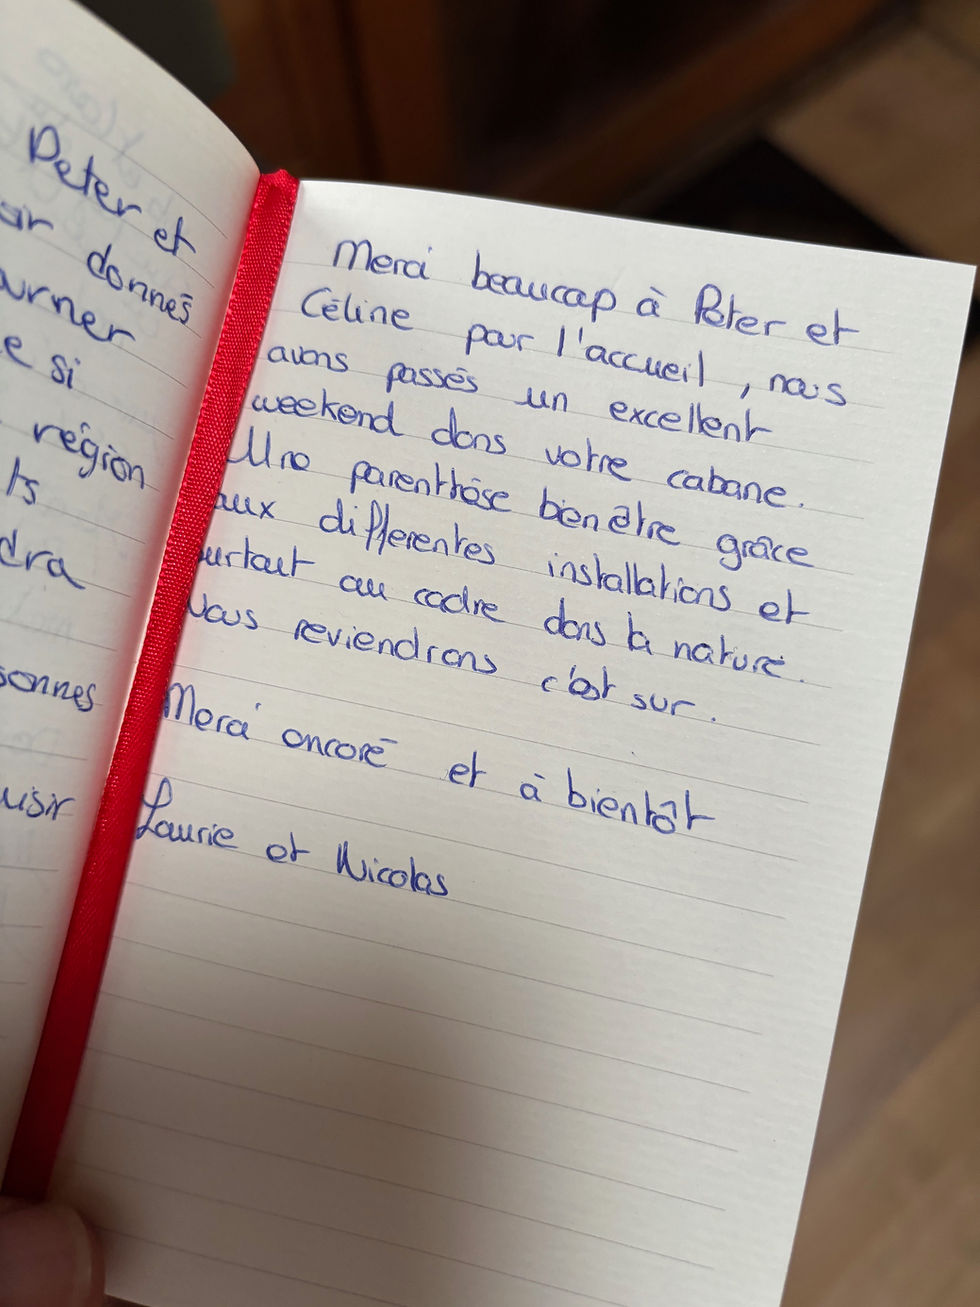 Peter et
donnés
urner
e si
région
ts
dra
sonnes
isir
Merci beaucoup à Peter et
Céline pour l'accueil, nous
avons passés un excellent
weekend dans votre cabane.
Une parenthèse bien être grâce
aux differentes installations et
surtout au cadre dans la nature.
Nous reviendrons c'est sur.
Merci encore et à bientôt
Laurie et Nicolas